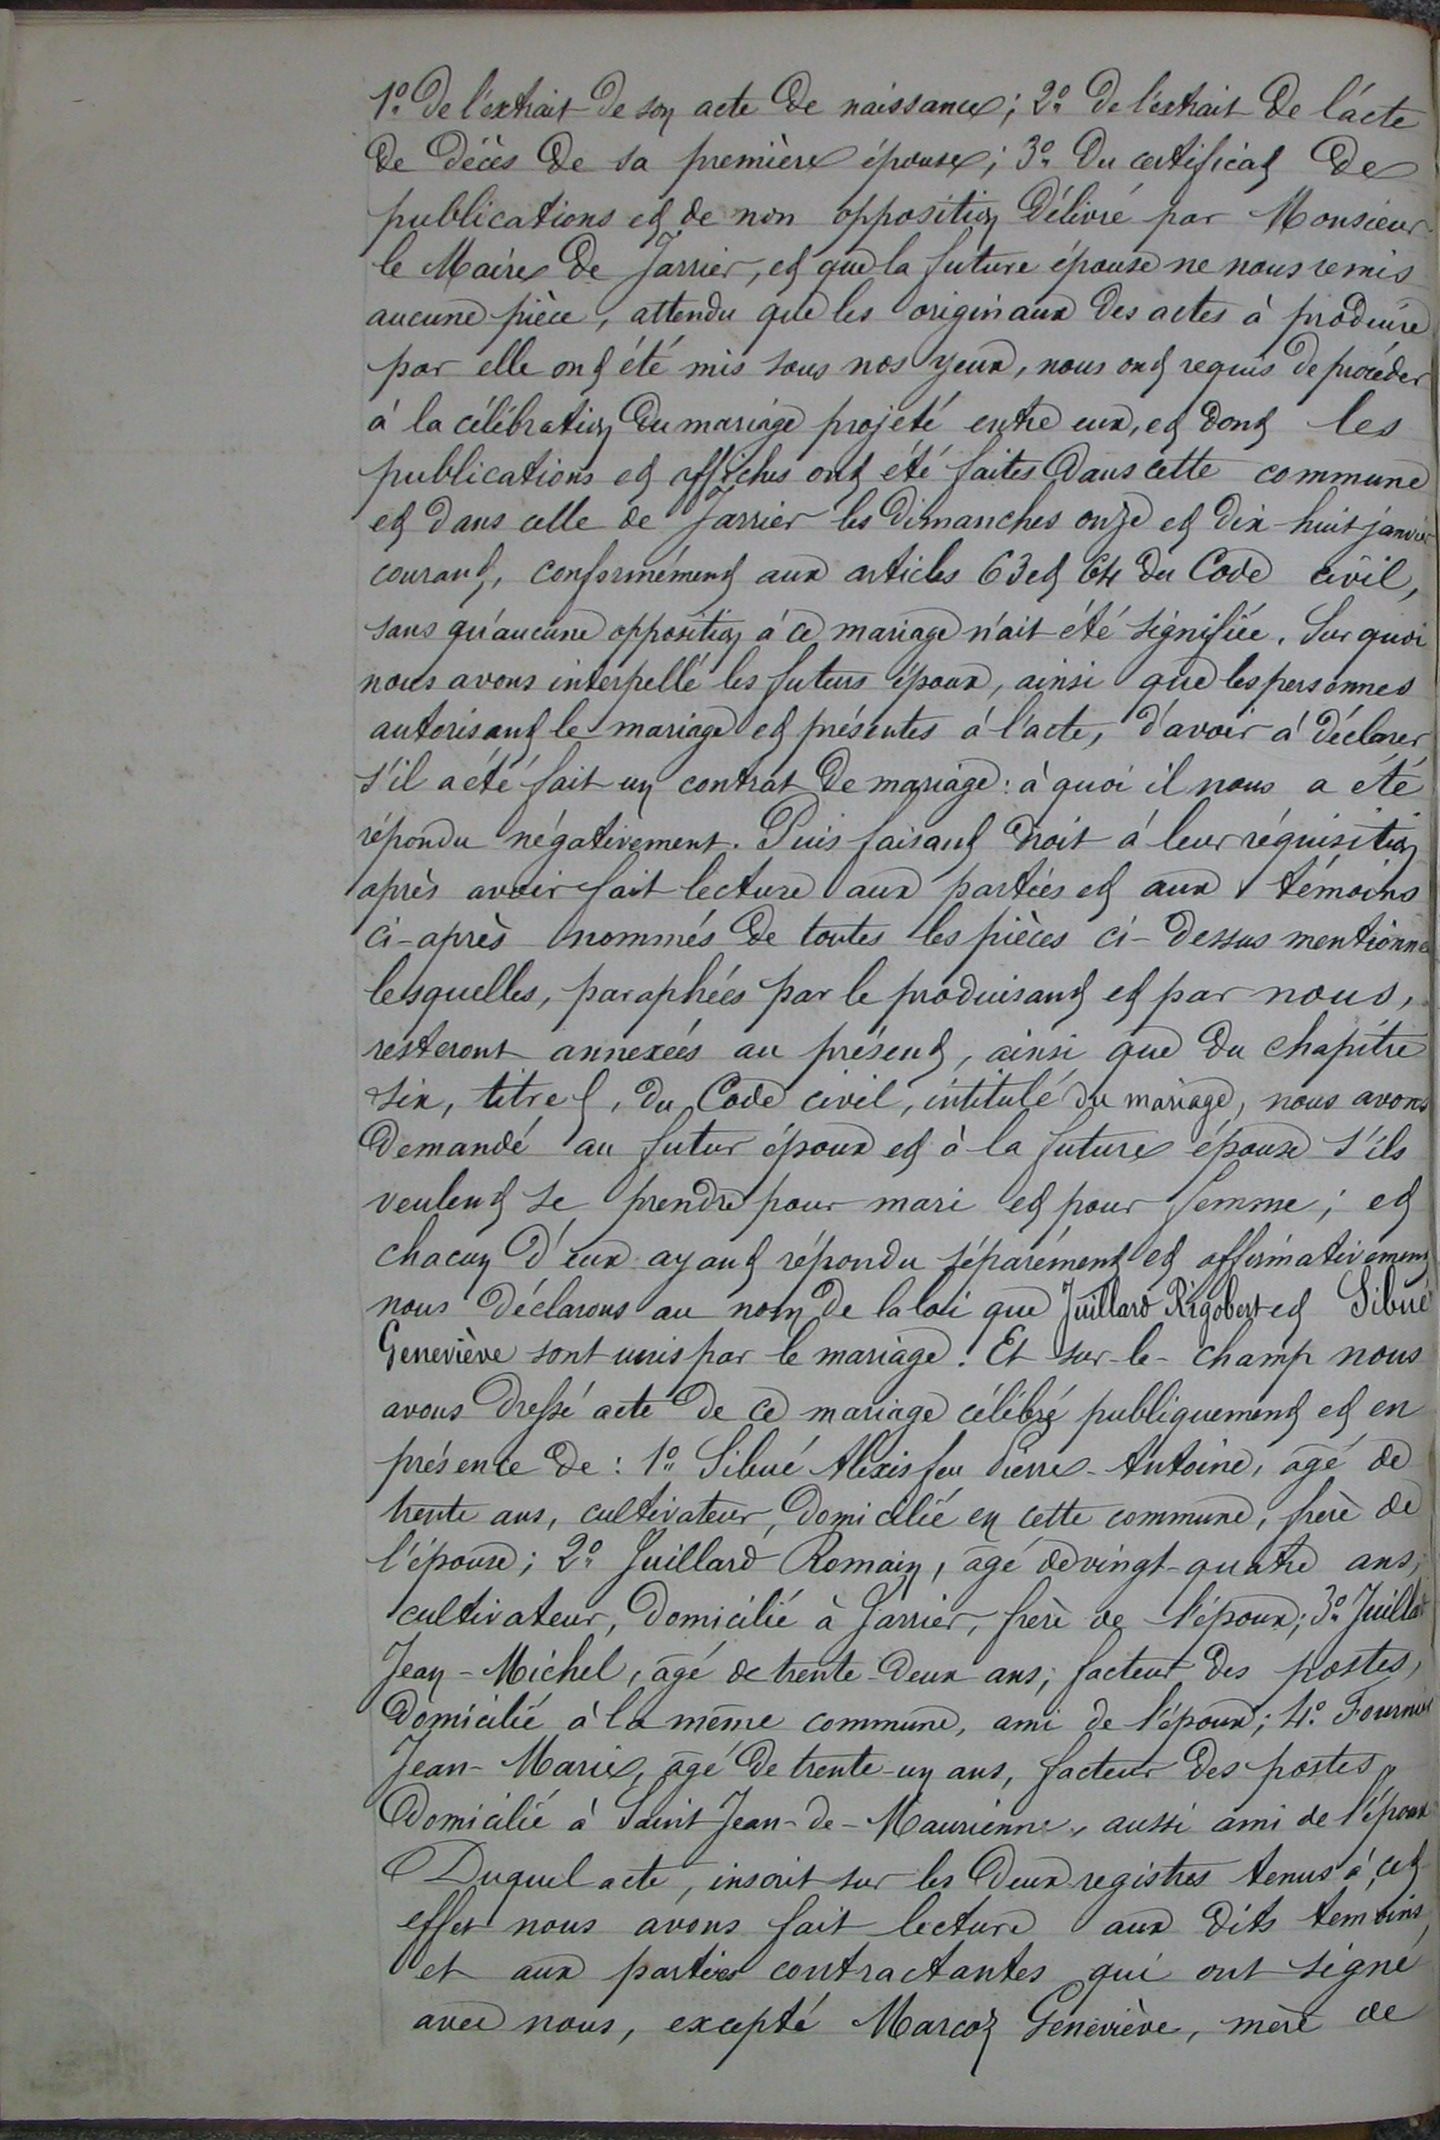 1º de l'extrait de son acte de naissance; 2º de l'extrait de l'acte
de décès de sa première épouse; 3º du certificat de
publications et de non opposition délivré par Monsieur
le Maire de Jarrier, et que la future épouse ne nous remis
aucune pièce, attendu que les originaux des actes à produire
par elle ont été mis sous nos yeux, nous ont requis de procéder
à la célébration du mariage projeté entre eux, et dont les
publications et affiches ont été faites dans cette commune
et dans celle de Jarrier les dimanches onze et dix-huit janvier
courant, conformément aux articles 63 et 64 du Code civil,
sans qu'aucune opposition à ce mariage n'ait été signifiée. Sur quoi
nous avons interpellé les futurs époux, ainsi que les personnes
autorisant le mariage et présentes à l'acte, d'avoir à déclarer
s'il a été fait un contrat de mariage: à quoi il nous a été
répondu négativement. Puis faisant droit à leur réquisition
après avoir fait lecture aux parties et aux témoins
ci-après nommés de toutes les pièces ci-dessus mentionné
lesquelles, paraphées par le produisant et par nous,
resteront annexées au présent, ainsi que du chapitre
six, titre, du Code civil, intitulé du mariage, nous avons
demandé au futur époux et à la future épouse s'ils
veulent se prendre pour mari et pour femme; et
chacun d'eux ayant répondu séparément et affirmativement
nous déclarons au nom de la loi que Juillard Rigobert et Sibué
Geneviève sont unis par le mariage. Et sur-le-champ nous
avons dressé acte de ce mariage célébré publiquement et en
présence de: 1º Sibué Alexis feu Pierre-Antoine, âgé de
trente ans, cultivateur, domicilié en cette commune, frère de
l'épouse; 2º Juillard Romain, âgé de vingt-quatre ans,
cultivateur, domicilié à Jarrier, frère de l'époux; 3º Juillar
Jean-Michel, âgé de trente-deux ans, facteur des postes,
domicilié à la même commune, ami de l'époux; 4º Fournier
Jean-Marie, âgé de trente-un ans, facteur des postes,
domicilié à Saint Jean-de-Maurienne, aussi ami de l'époux
Duquel acte, inscrit sur les deux registres tenus à cet
effet nous avons fait lecture aux dits temoins,
et aux parties contractantes qui ont signé
avec nous, excepté Marcoz Geneviève, mère de